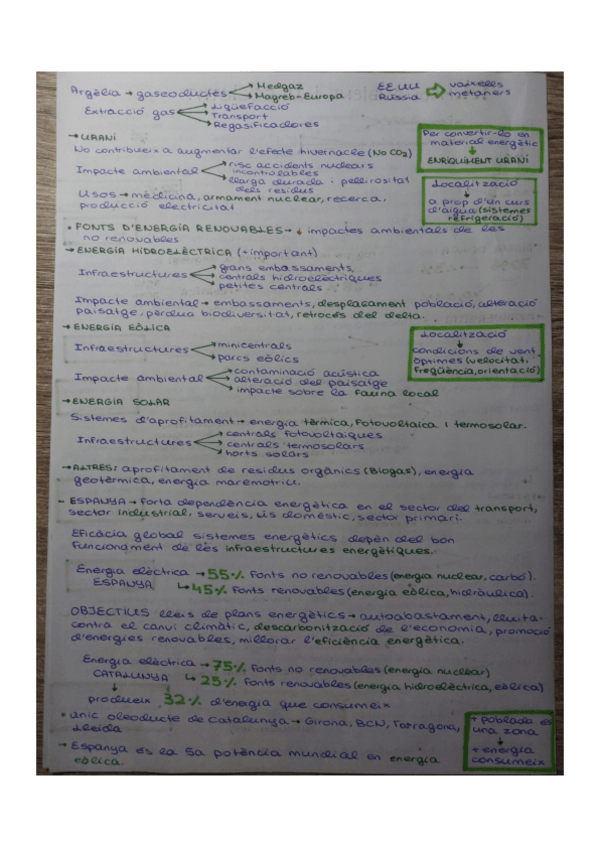 Argèlia → gasoductes → Medgaz
→ Magreb-Europa
EEUU
Rússia ⇨ vaixells
metaners
Extracció gas → Liqüefacció
→ Transport
→ Regasificadores
→ URANI
No contribueix a augmentar l'efecte hivernacle (No CO2)
Impacte ambiental → risc accidents nuclears
incontrolables
→ llarga durada i perillositat
dels residus
Per convertir-lo en
material energètic
↓
ENRIQUIMENT URANI
Usos → medicina, armament nuclear, recerca,
producció electricitat
Localització
↓
a prop d'un curs
d'aigua (sistemes
refrigeració)
• FONTS D'ENERGIA RENOVABLES → ↓ impactes ambientals de les
no renovables
→ ENERGIA HIDROELÈCTRICA (+important)
Infraestructures → grans embassaments,
→ centrals hidroelèctriques
→ petites centrals
Impacte ambiental → embassaments, desplaçament població, alteració
paisatge, pèrdua biodiversitat, retrocés del delta.
→ ENERGIA EÒLICA
Infraestructures → minicentrals
→ parcs eòlics
Impacte ambiental → contaminació acústica
→ alteració del paisatge
→ impacte sobre la fauna local
Localització
↓
condicions de vent
òptimes (velocitat,
freqüència, orientació)
→ ENERGIA SOLAR
Sistemes d'aprofitament → energia tèrmica, fotovoltaica i termosolar.
Infraestructures → centrals fotovoltaiques
→ centrals termosolars
→ horts solars
→ ALTRES: aprofitament de residus orgànics (Biogas), energia
geotèrmica, energia maremotriu.
- ESPANYA → Forta dependència energètica en el sector del transport,
sector industrial, serveis, ús domèstic, sector primari.
Eficàcia global sistemes energètics depèn del bon
funcionament de les infraestructures energètiques.
Energia elèctrica → 55% Fonts no renovables (energia nuclear, carbó).
ESPANYA ↳ 45% Fonts renovables (energia eòlica, hidràulica).
OBJECTIUS lleis de plans energètics → autoabastament, lluita
contra el canvi climàtic, descarbonització de l'economia, promoció
d'energies renovables, millorar l'eficiència energètica.
Energia elèctrica → 75% Fonts no renovables (energia nuclear)
CATALUNYA ↳ 25% Fonts renovables (energia hidroelèctrica, eòlica)
↓
produeix 32% d'energia que consumeix
• Únic oleoducte de Catalunya → Girona, BCN, Tarragona,
Lleida
+ poblada és
una zona
↓
+ energia
consumeix
→ Espanya és la 5a potència mundial en energia
eòlica.